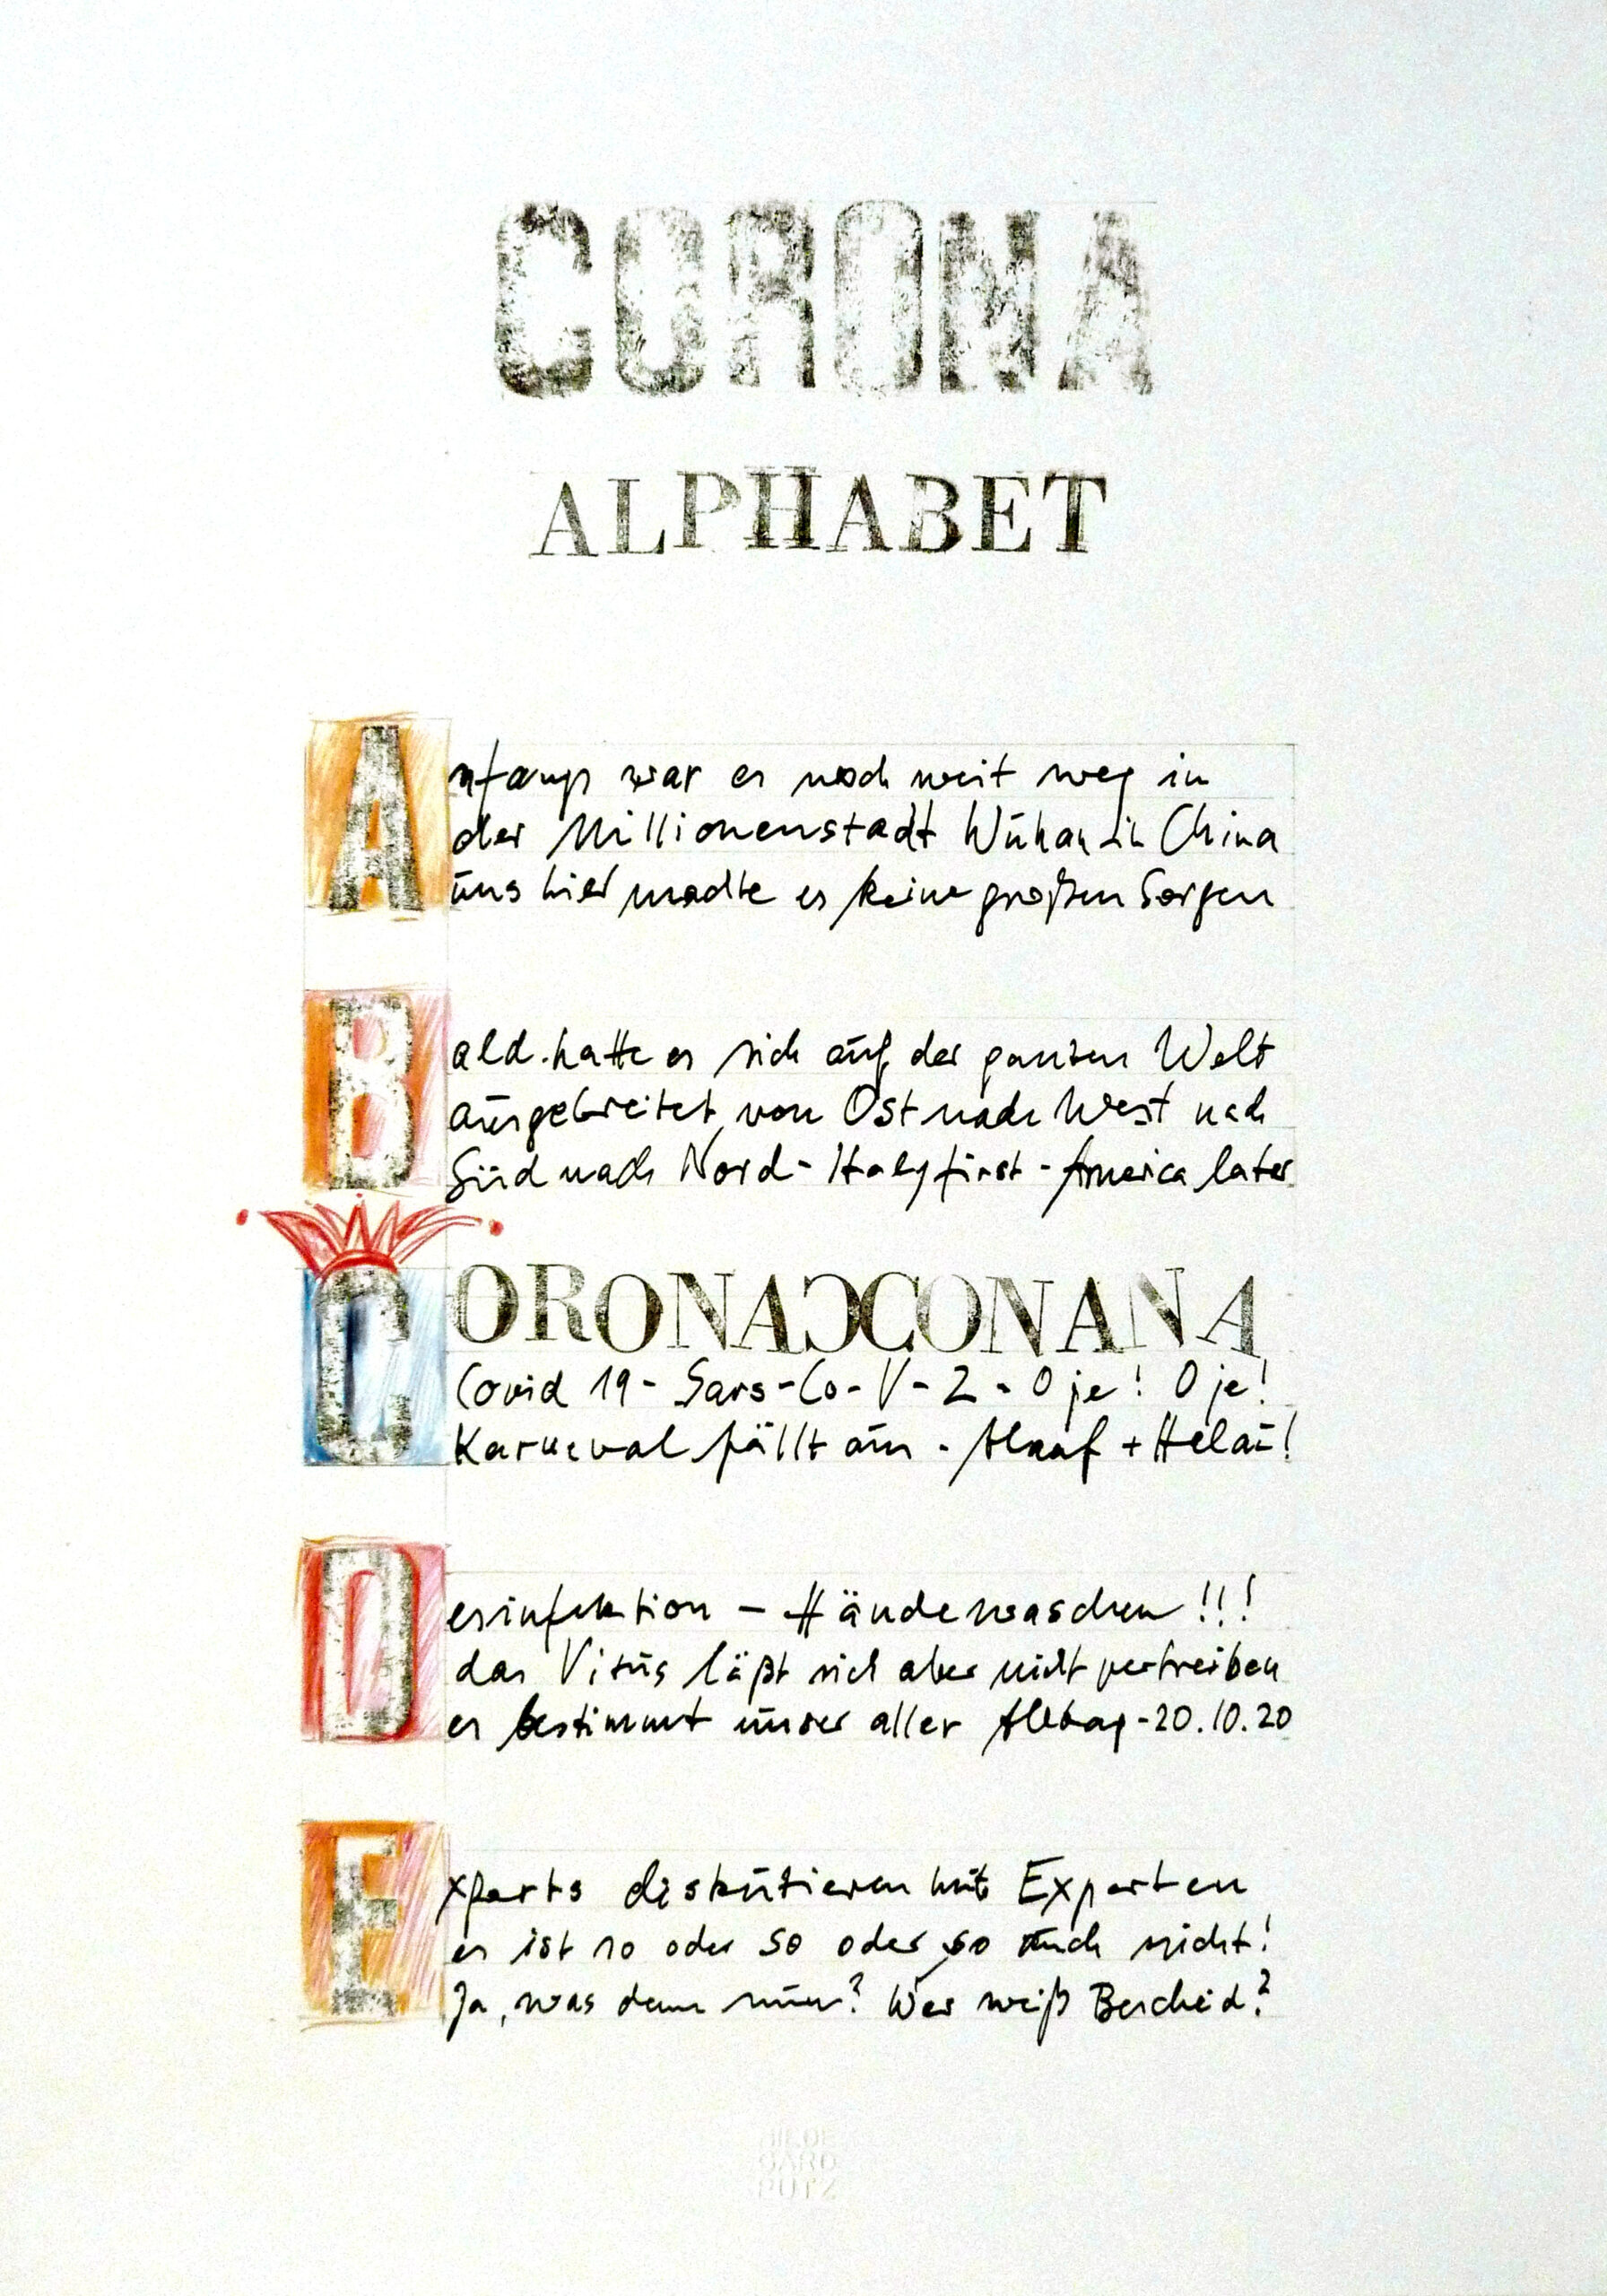 CORONA
ALPHABET
Anfangs war es noch weit weg in
der Millionenstadt Wuhan in China
uns hier machte es keine großen Sorgen
Bald hatte es sich auf der ganzen Welt
ausgebreitet, von Ost nach West nach
Süd nach Nord - Italy first - America later
CORONAƆCONANA
Covid 19 - Sars-Co-V-2 - O je! O je!
Karneval fällt aus - Alaaf + Helau!
Desinfektion - Händewaschen!!!
das Virus läßt sich aber nicht vertreiben
es bestimmt unser aller Alltag - 20.10.20
Experts diskutieren mit Experten
es ist so oder so oder so auch nicht!
Ja, was denn nun? Wer weiß Bescheid?
HILDE
GARD
PÜTZ